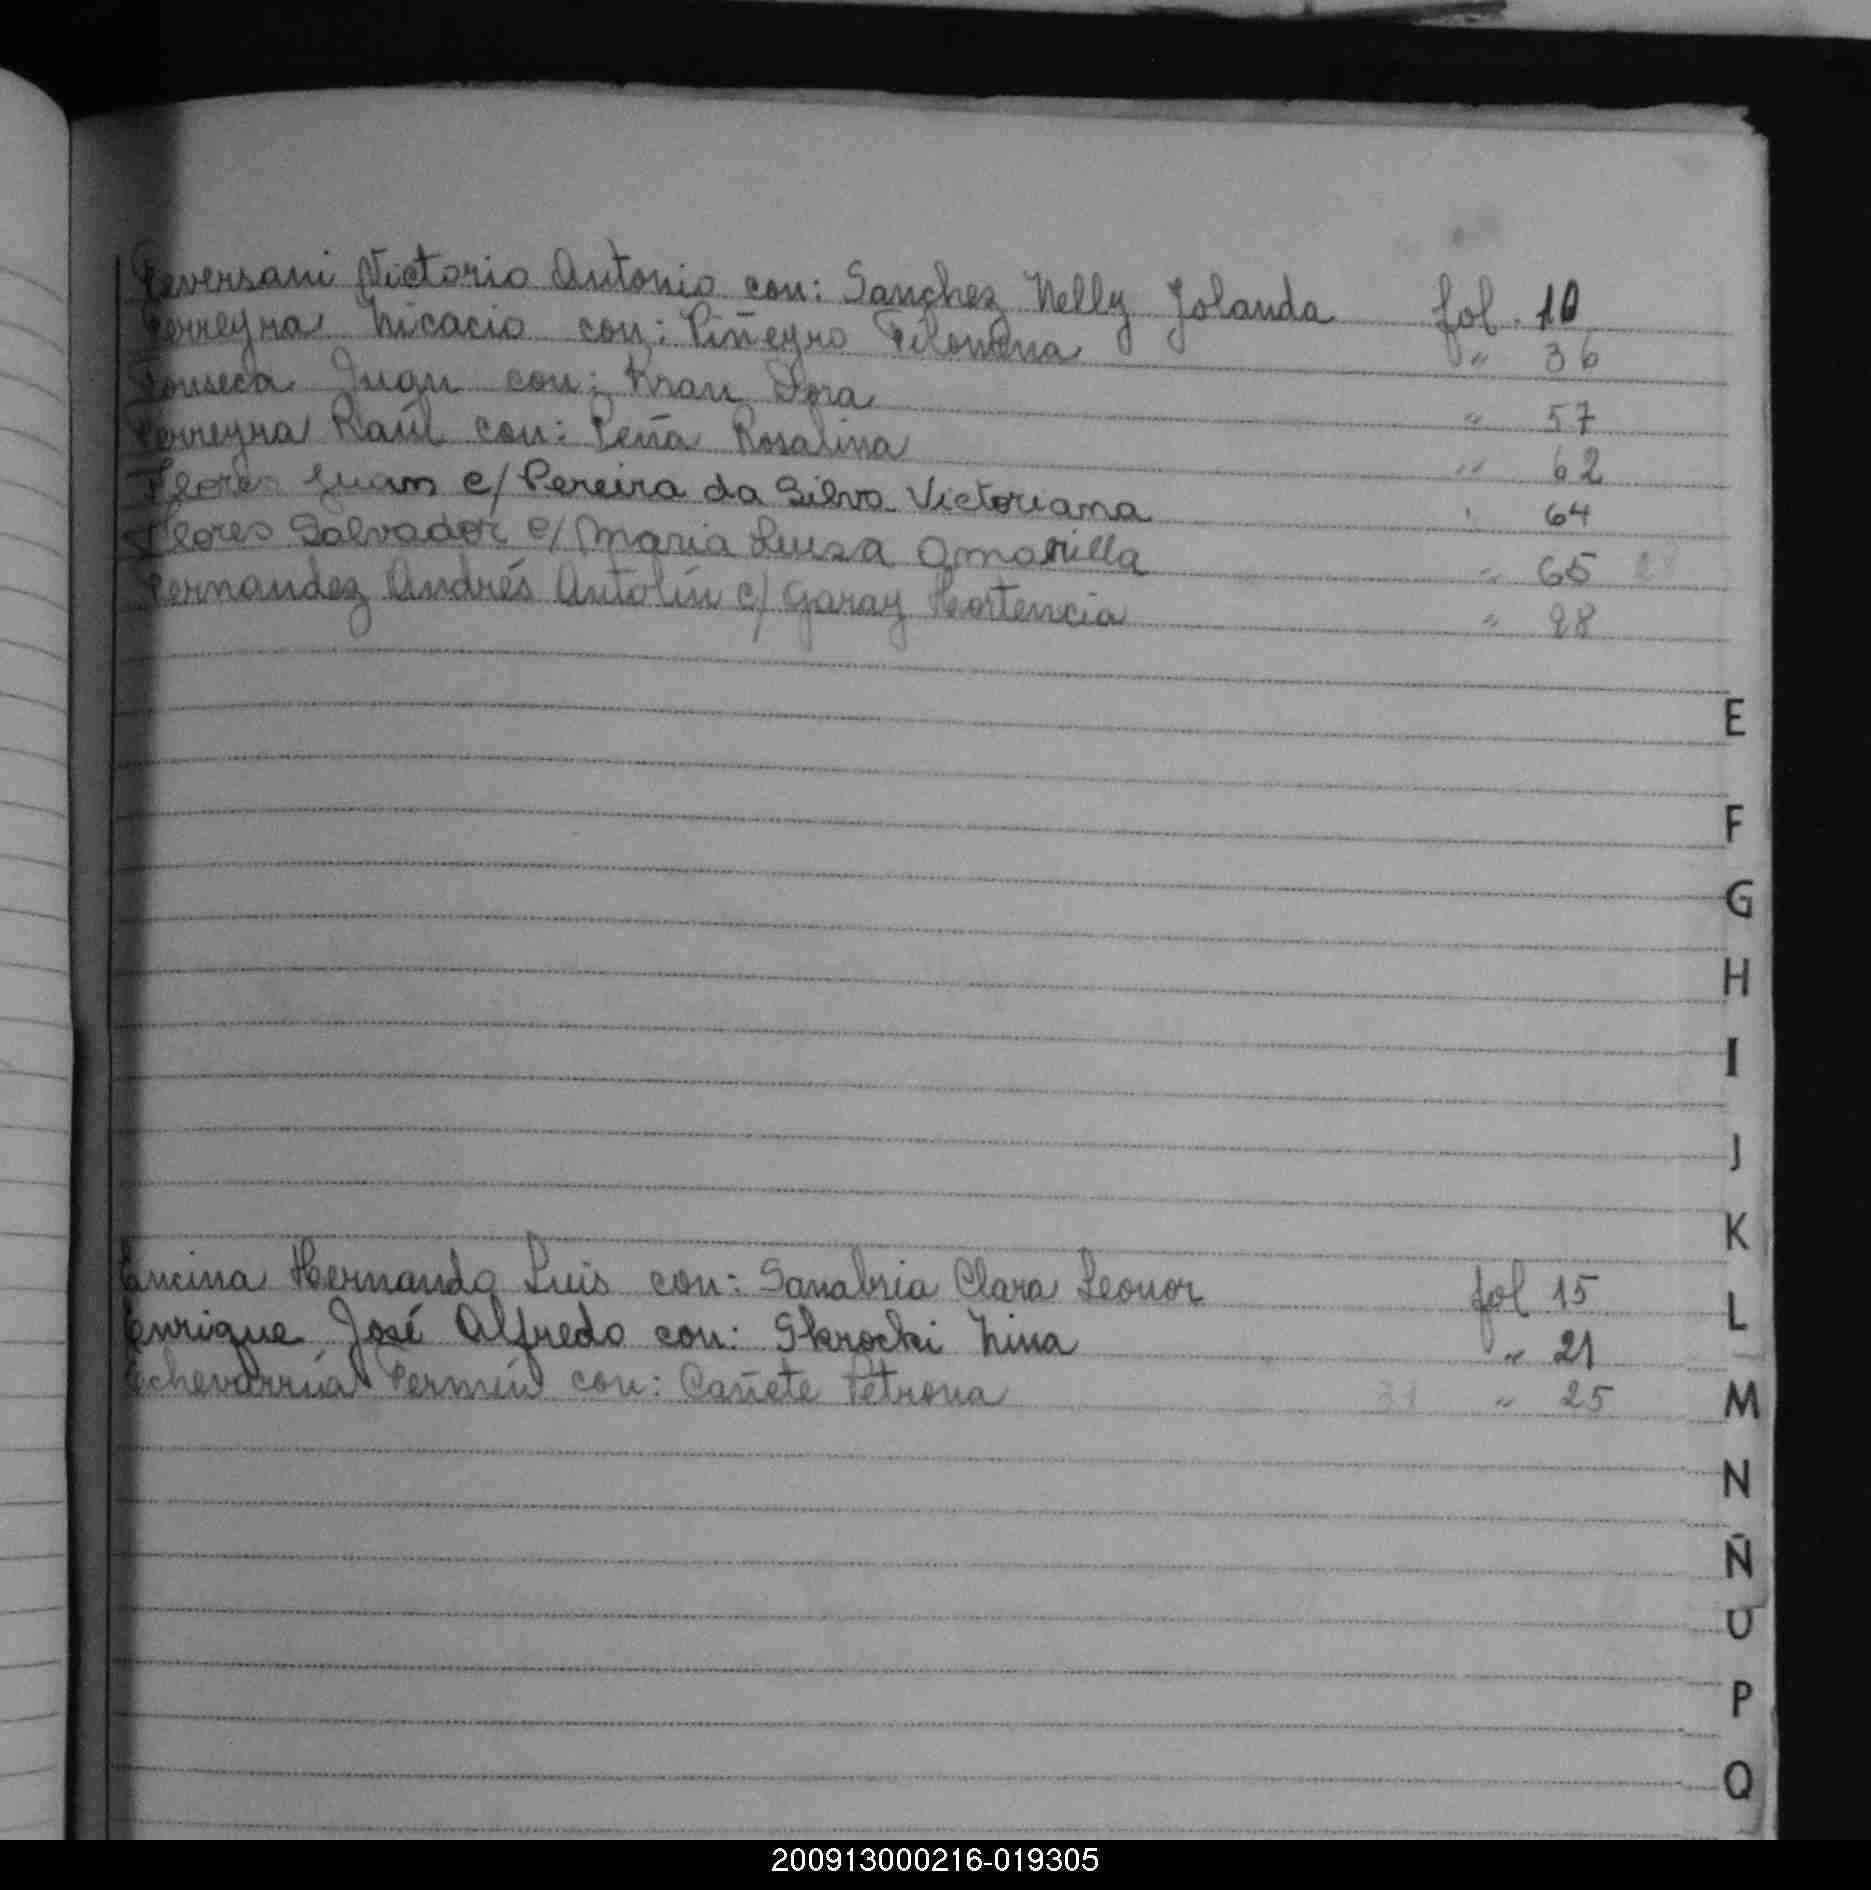 Feversani Victorio Antonio con: Sanchez Nelly Jolanda fol. 10
Ferreyra Nicacio con: Piñeyro Filomena " 36
Fonseca Juan con: Kran Dora " 57
Ferreyra Raúl con: Peña Rosalina " 62
Flores Juan c/ Pereira da Silva Victoriana " 64
Flores Salvador c/ Maria Luisa Amarilla " 65 28
Fernandez Andrés Antolín c/ Garay Hortencia " 28
E
F
G
H
I
J
K
Encina Hernando Luis con: Sanabria Clara Leonor fol 15
L
Enrique José Alfredo con: Skrocki Nina " 21
Echevarría Fermín con: Cañete Petrona 31 " 25
M
N
Ñ
O
P
Q
200913000216-019305